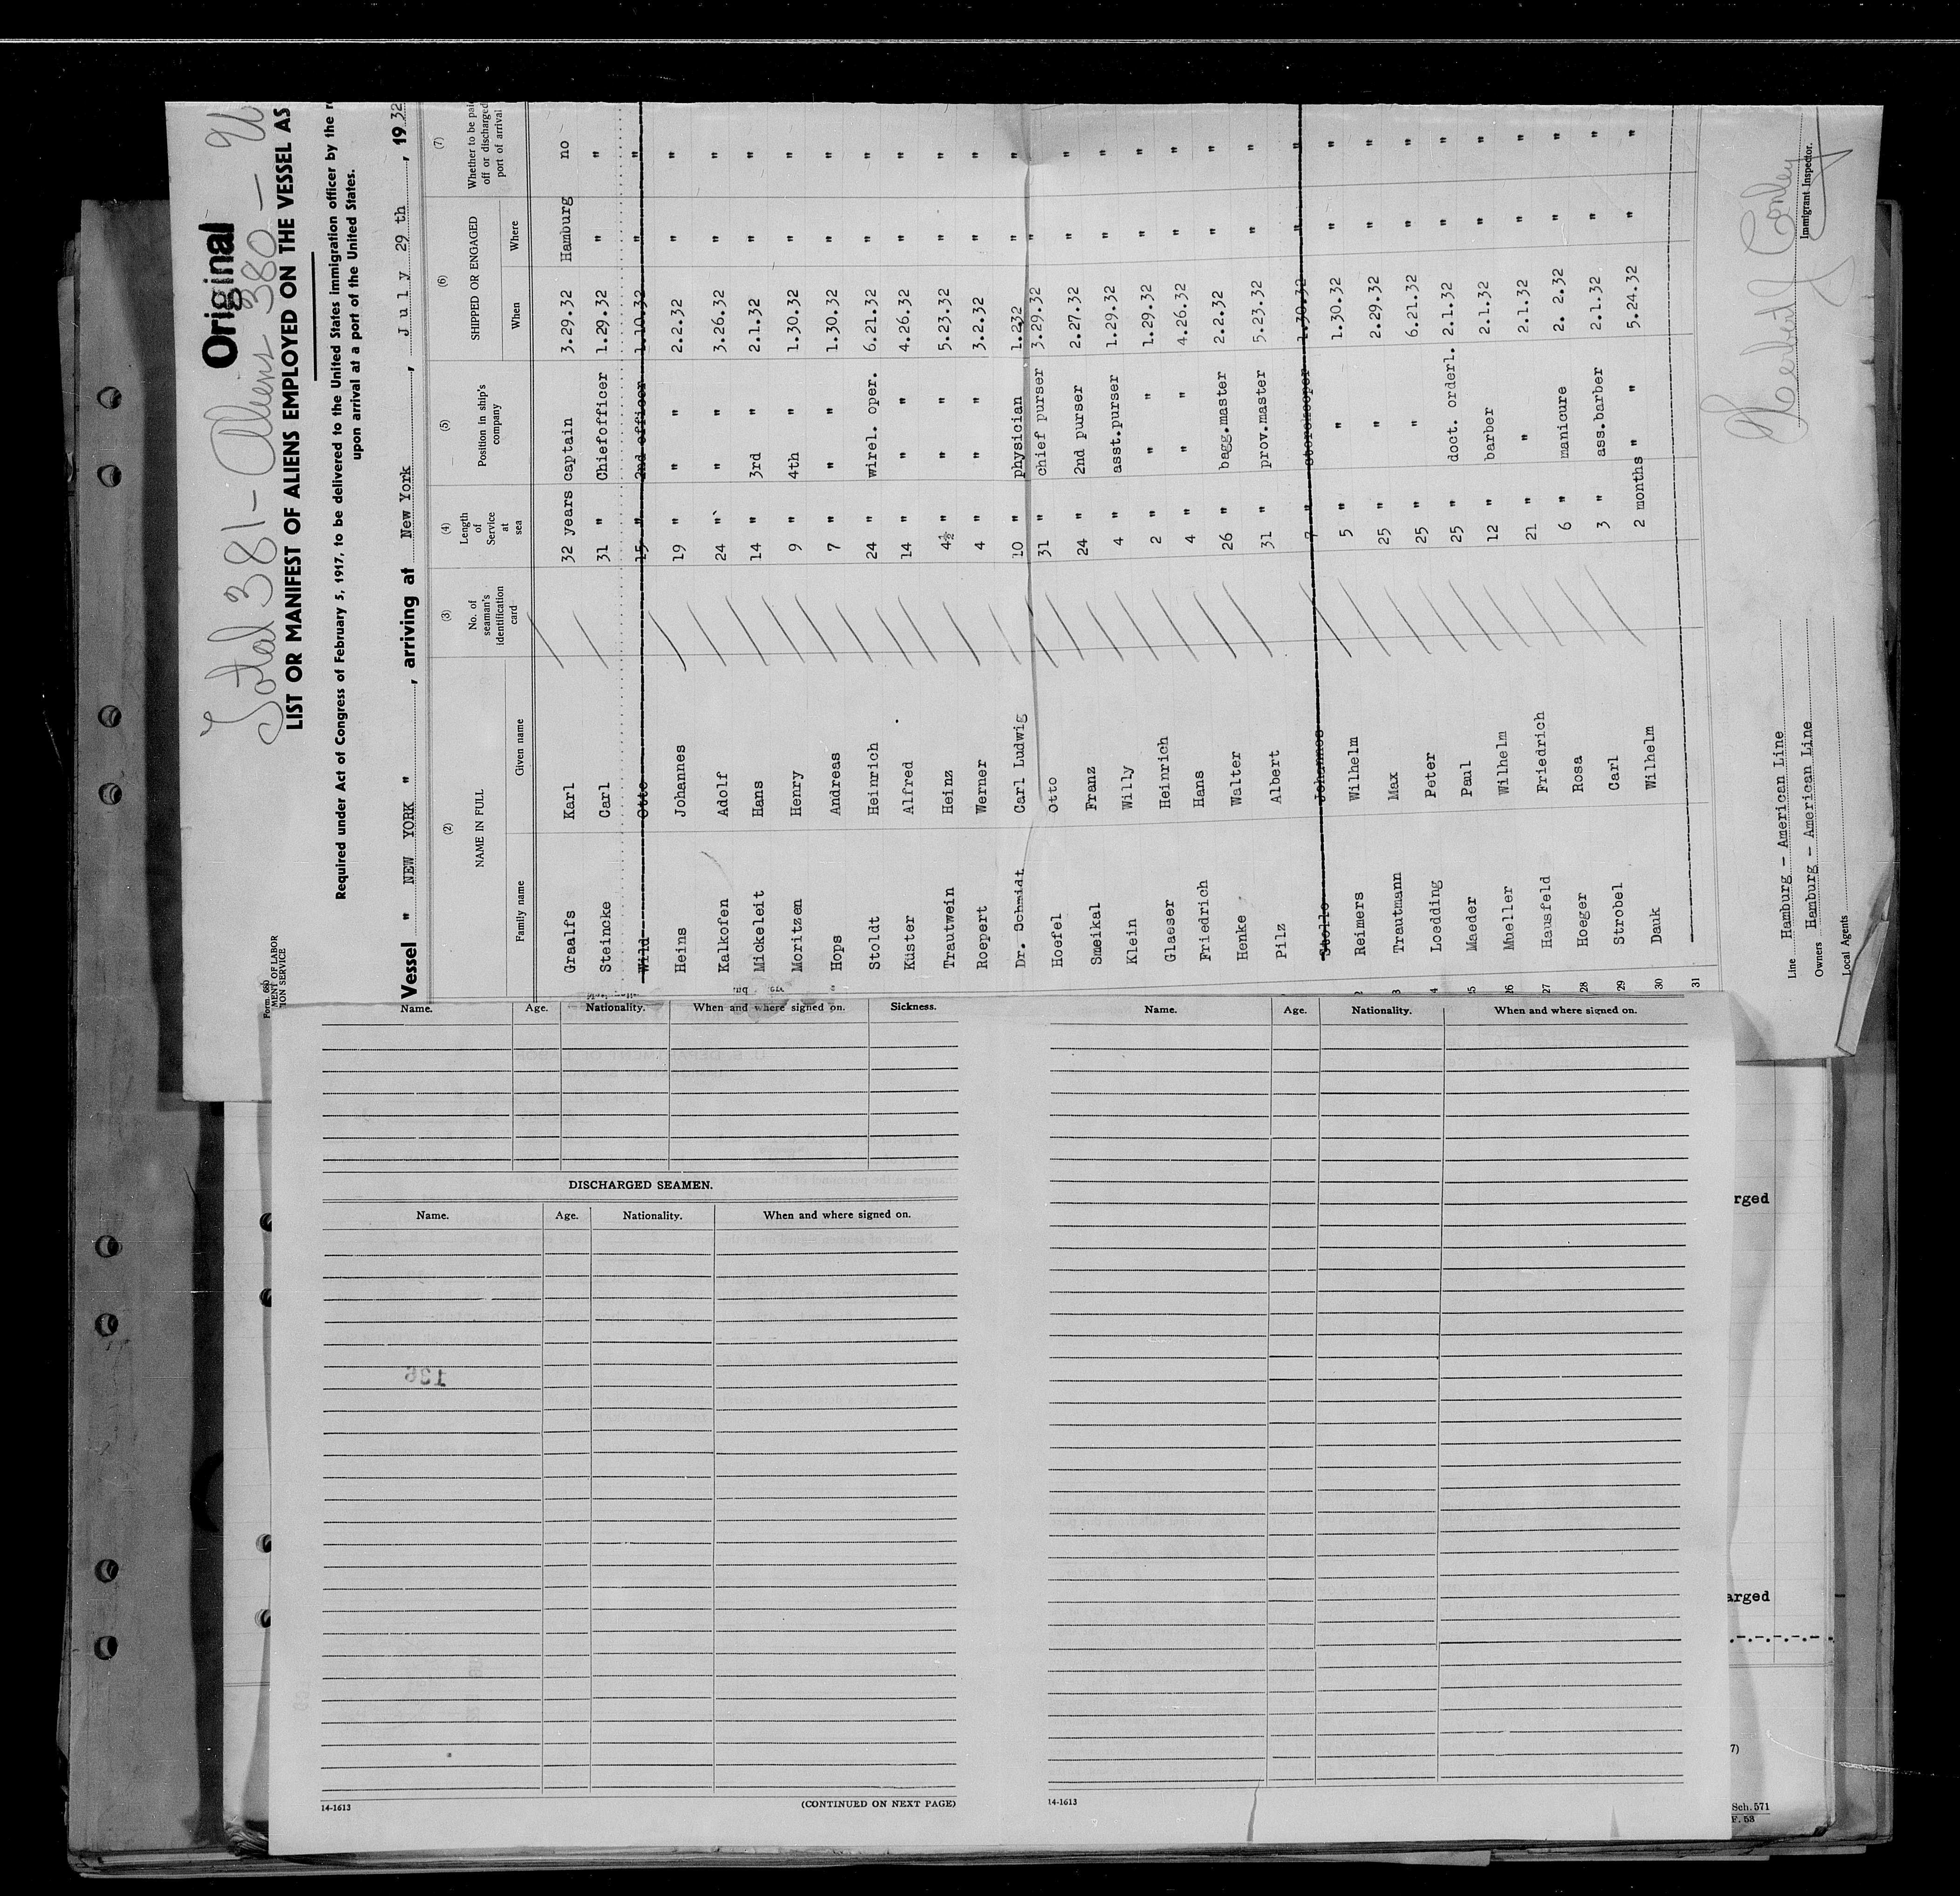 Original
Total 381 - Aliens 380 -
LIST OR MANIFEST OF ALIENS EMPLOYED ON THE VESSEL AS
Form 680
MENT OF LABOR
ION SERVICE
Required under Act of Congress of February 5, 1917, to be delivered to the United States immigration officer by the r
upon arrival at a port of the United States.
Vessel " NEW YORK " , arriving at New York , July 29th , 1932
(2) (3) (4) (5) (6) (7)
NAME IN FULL No. of seaman's identification card Length of Service at sea Position in ship's company SHIPPED OR ENGAGED Whether to be paid off or discharged port of arrival
Family name Given name When Where
Graalfs Karl 32 years captain 3.29.32 Hamburg no
Steincke Carl 31 " Chiefofficer 1.29.32 " "
Wild Otto 15 " 2nd officer 1.10.32 " "
Heins Johannes 19 " " " 2.2.32 " "
Kalkofen Adolf 24 " " " 3.26.32 " "
Mickeleit Hans 14 " 3rd " 2.1.32 " "
Moritzen Henry 9 " 4th " 1.30.32 " "
Hops Andreas 7 " " " 1.30.32 " "
Stoldt Heinrich 24 " wirel. oper. 6.21.32 " "
Küster Alfred 14 " " " 4.26.32 " "
Trautwein Heinz 4½ " " " 5.23.32 " "
Roepert Werner 4 " " " 3.2.32 " "
Dr. Schmidt Carl Ludwig 10 " physician 1.232 " "
Hoefel Otto 31 " chief purser 3.29.32 "
Smeikal Franz 24 " 2nd purser 2.27.32 " "
Klein Willy 4 " asst.purser 1.29.32 " "
Glaeser Heinrich 2 " " " 1.29.32 " "
Friedrich Hans 4 " " " 4.26.32 " "
Henke Walter 26 " bagg.master 2.2.32 " "
Pilz Albert 31 " prov.master 5.23.32 " "
Stolle Johannes 7 " storekeeper 1.30.32 " "
Reimers Wilhelm 5 " " 1.30.32 " "
Trautmann Max 25 " " 2.29.32 " "
Loedding Peter 25 " " 6.21.32 " "
Maeder Paul 25 " doct. orderl. 2.1.32 " "
26 Mueller Wilhelm 12 " barber 2.1.32 " "
27 Hausfeld Friedrich 21 " " 2.1.32 " "
28 Hoeger Rosa 6 " manicure 2. 2.32 " "
29 Strobel Carl 3 " ass.barber 2.1.32 " "
30 Dauk Wilhelm 2 months " " 5.24.32 " "
31
Line Hamburg - American Line
Owners Hamburg - American Line
Local Agents
Herbert Conley
Immigrant Inspector.
Name. Age. Nationality. When and where signed on. Sickness.
DISCHARGED SEAMEN.
Name. Age. Nationality. When and where signed on.
14-1613 (CONTINUED ON NEXT PAGE)
Name. Age. Nationality. When and where signed on.
14-1613
rged
arged
7)
Sch. 571
F. 53